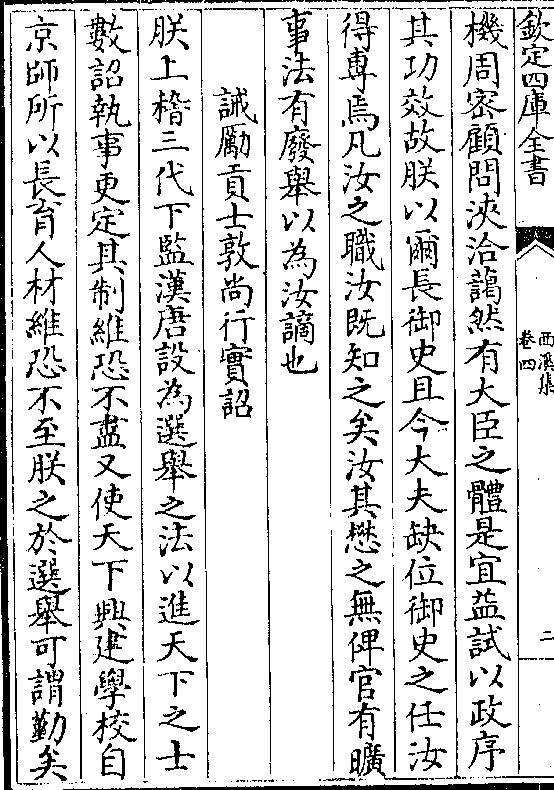 欽定四庫全書
西溪集
卷四
二
機周密顧問浹洽藹然有大臣之體是宜益試以政序
其功效故朕以爾長御史且今大夫缺位御史之任汝
得專焉凡汝之職汝既知之矣汝其懋之無俾官有曠
事法有廢舉以為汝謫也
誡勵貢士敦尚行實詔
朕上稽三代下監漢唐設為選舉之法以進天下之士
數詔執事更定其制維恐不盡又使天下興建學校自
京師所以長育人材維恐不至朕之於選舉可謂勤矣